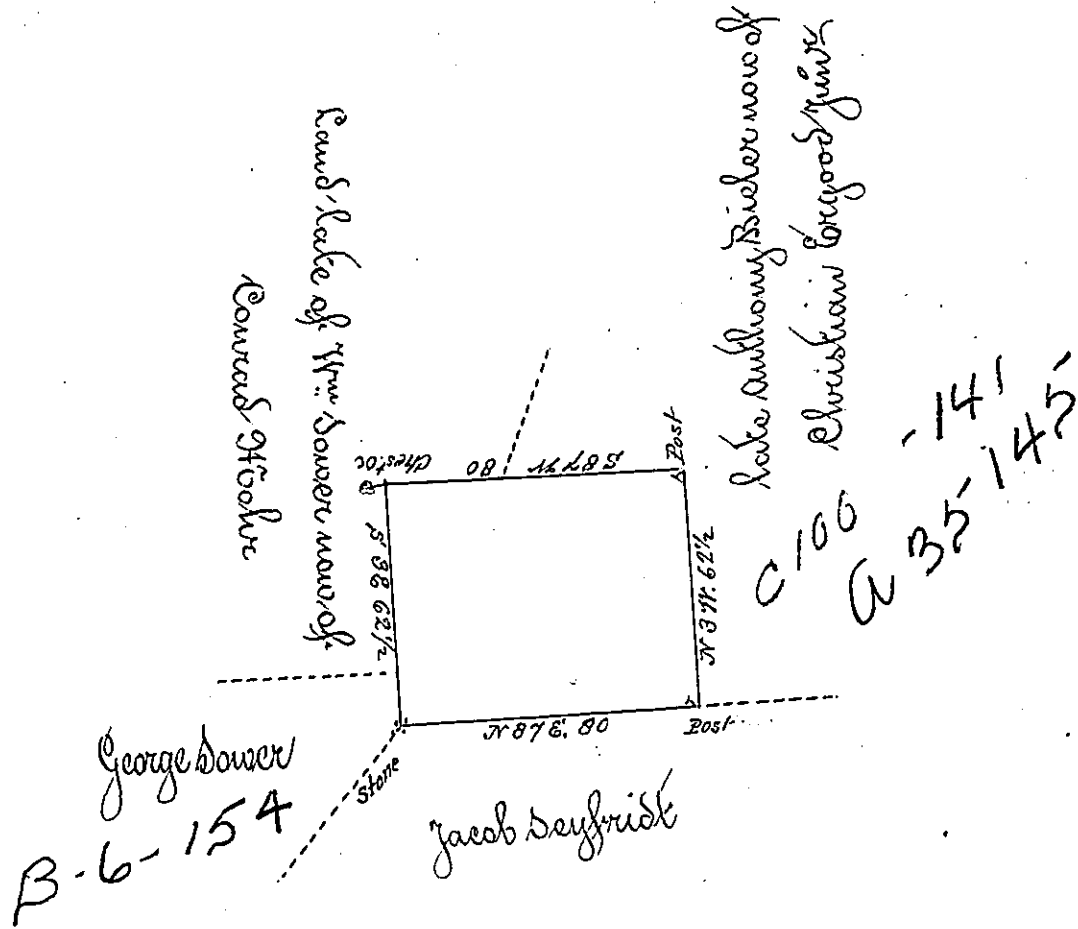 Conrad Mohr
Land late of Wm. Sower now of
late Anthony Bieber now of
Christian Ergood Junr.
C 100 - 141
A 35 145
Chestoc
S 87 W 80
Post
S 3 E 62½
N 3 W. 62½
N 87 E. 80
Post
Stone
George Sower
B-6-154
Jacob Seyfridt